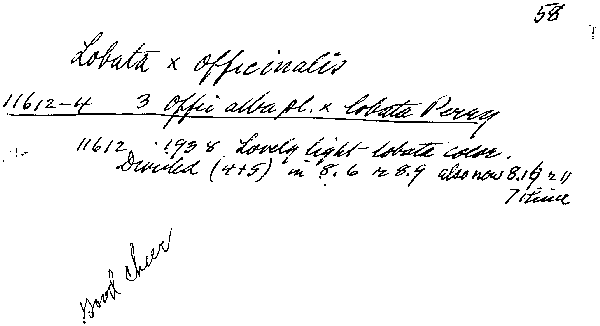 58
Lobata x officinalis
11612-4 3 offic alba pl. x lobata Perry
11612 1938 Lovely light lobata color.
Divided (4+5) in 8.6 r 8.9 also now 8.19 r 11
7
Good cheer